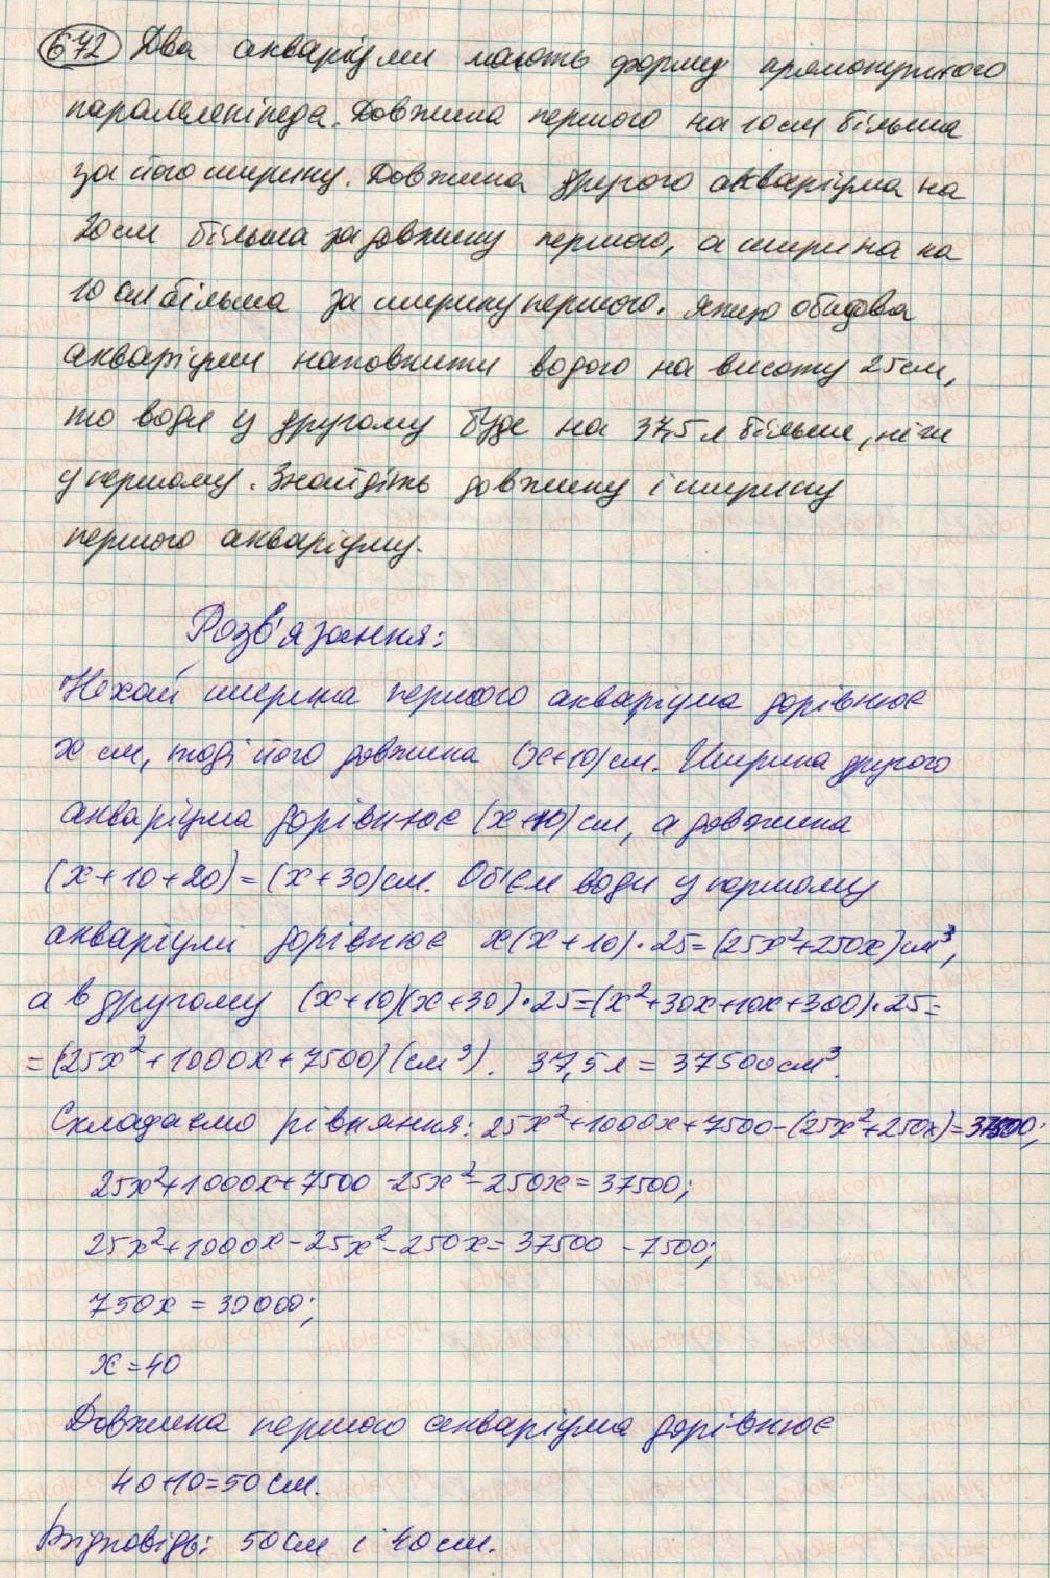 672 Два акваріуми мають форму прямокутного
паралелепіпеда. Довжина першого на 10 см більша
за його ширину. Довжина другого акваріума на
20 см більша за довжину першого, а ширина на
10 см більша за ширину першого. Якщо обидва
акваріуми наповнити водою на висоту 25 см,
то води у другому буде на 37,5 л більше, ніж
у першому. Знайдіть довжину і ширину
першого акваріуму.
Розв'язання:
Нехай ширина першого акваріума дорівнює
x см, тоді його довжина (x+10) см. Ширина другого
акваріума дорівнює (x+10) см, а довжина
(x+10+20)=(x+30) см. Об'єм води у першому
акваріумі дорівнює x(x+10)·25=(25x²+250x) см³,
а в другому (x+10)(x+30)·25=(x²+30x+10x+300)·25=
=(25x²+1000x+7500) (см³). 37,5 л = 37500 см³.
Складаємо рівняння: 25x²+1000x+7500-(25x²+250x)=37500;
25x²+1000x+7500-25x²-250x=37500;
25x²+1000x-25x²-250x=37500-7500;
750x=30000;
x=40
Довжина першого акваріума дорівнює
40+10=50 см.
Відповідь: 50 см і 40 см.